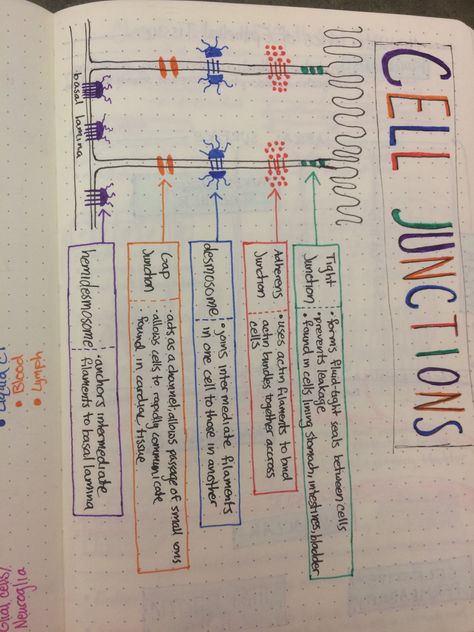 CELL JUNCTIONS
Tight
Junction
• forms fluid-tight seals between cells
• prevents leakage
• found in cells lining stomach, intestines, bladder
Adherens
Junction
• uses actin filaments to bind
actin bundles together accross
cells
desmosome
• joins intermediate filaments
in one cell to those in another
Gap
Junction
• acts as a channel; allows passage of small ions
• allows cells to rapidly communicate
• found in cardiac tissue
hemidesmosome
• anchors intermediate
filaments to basal lamina
basal lamina
• Blood
• Lymph
Glial cells/
Neuroglia